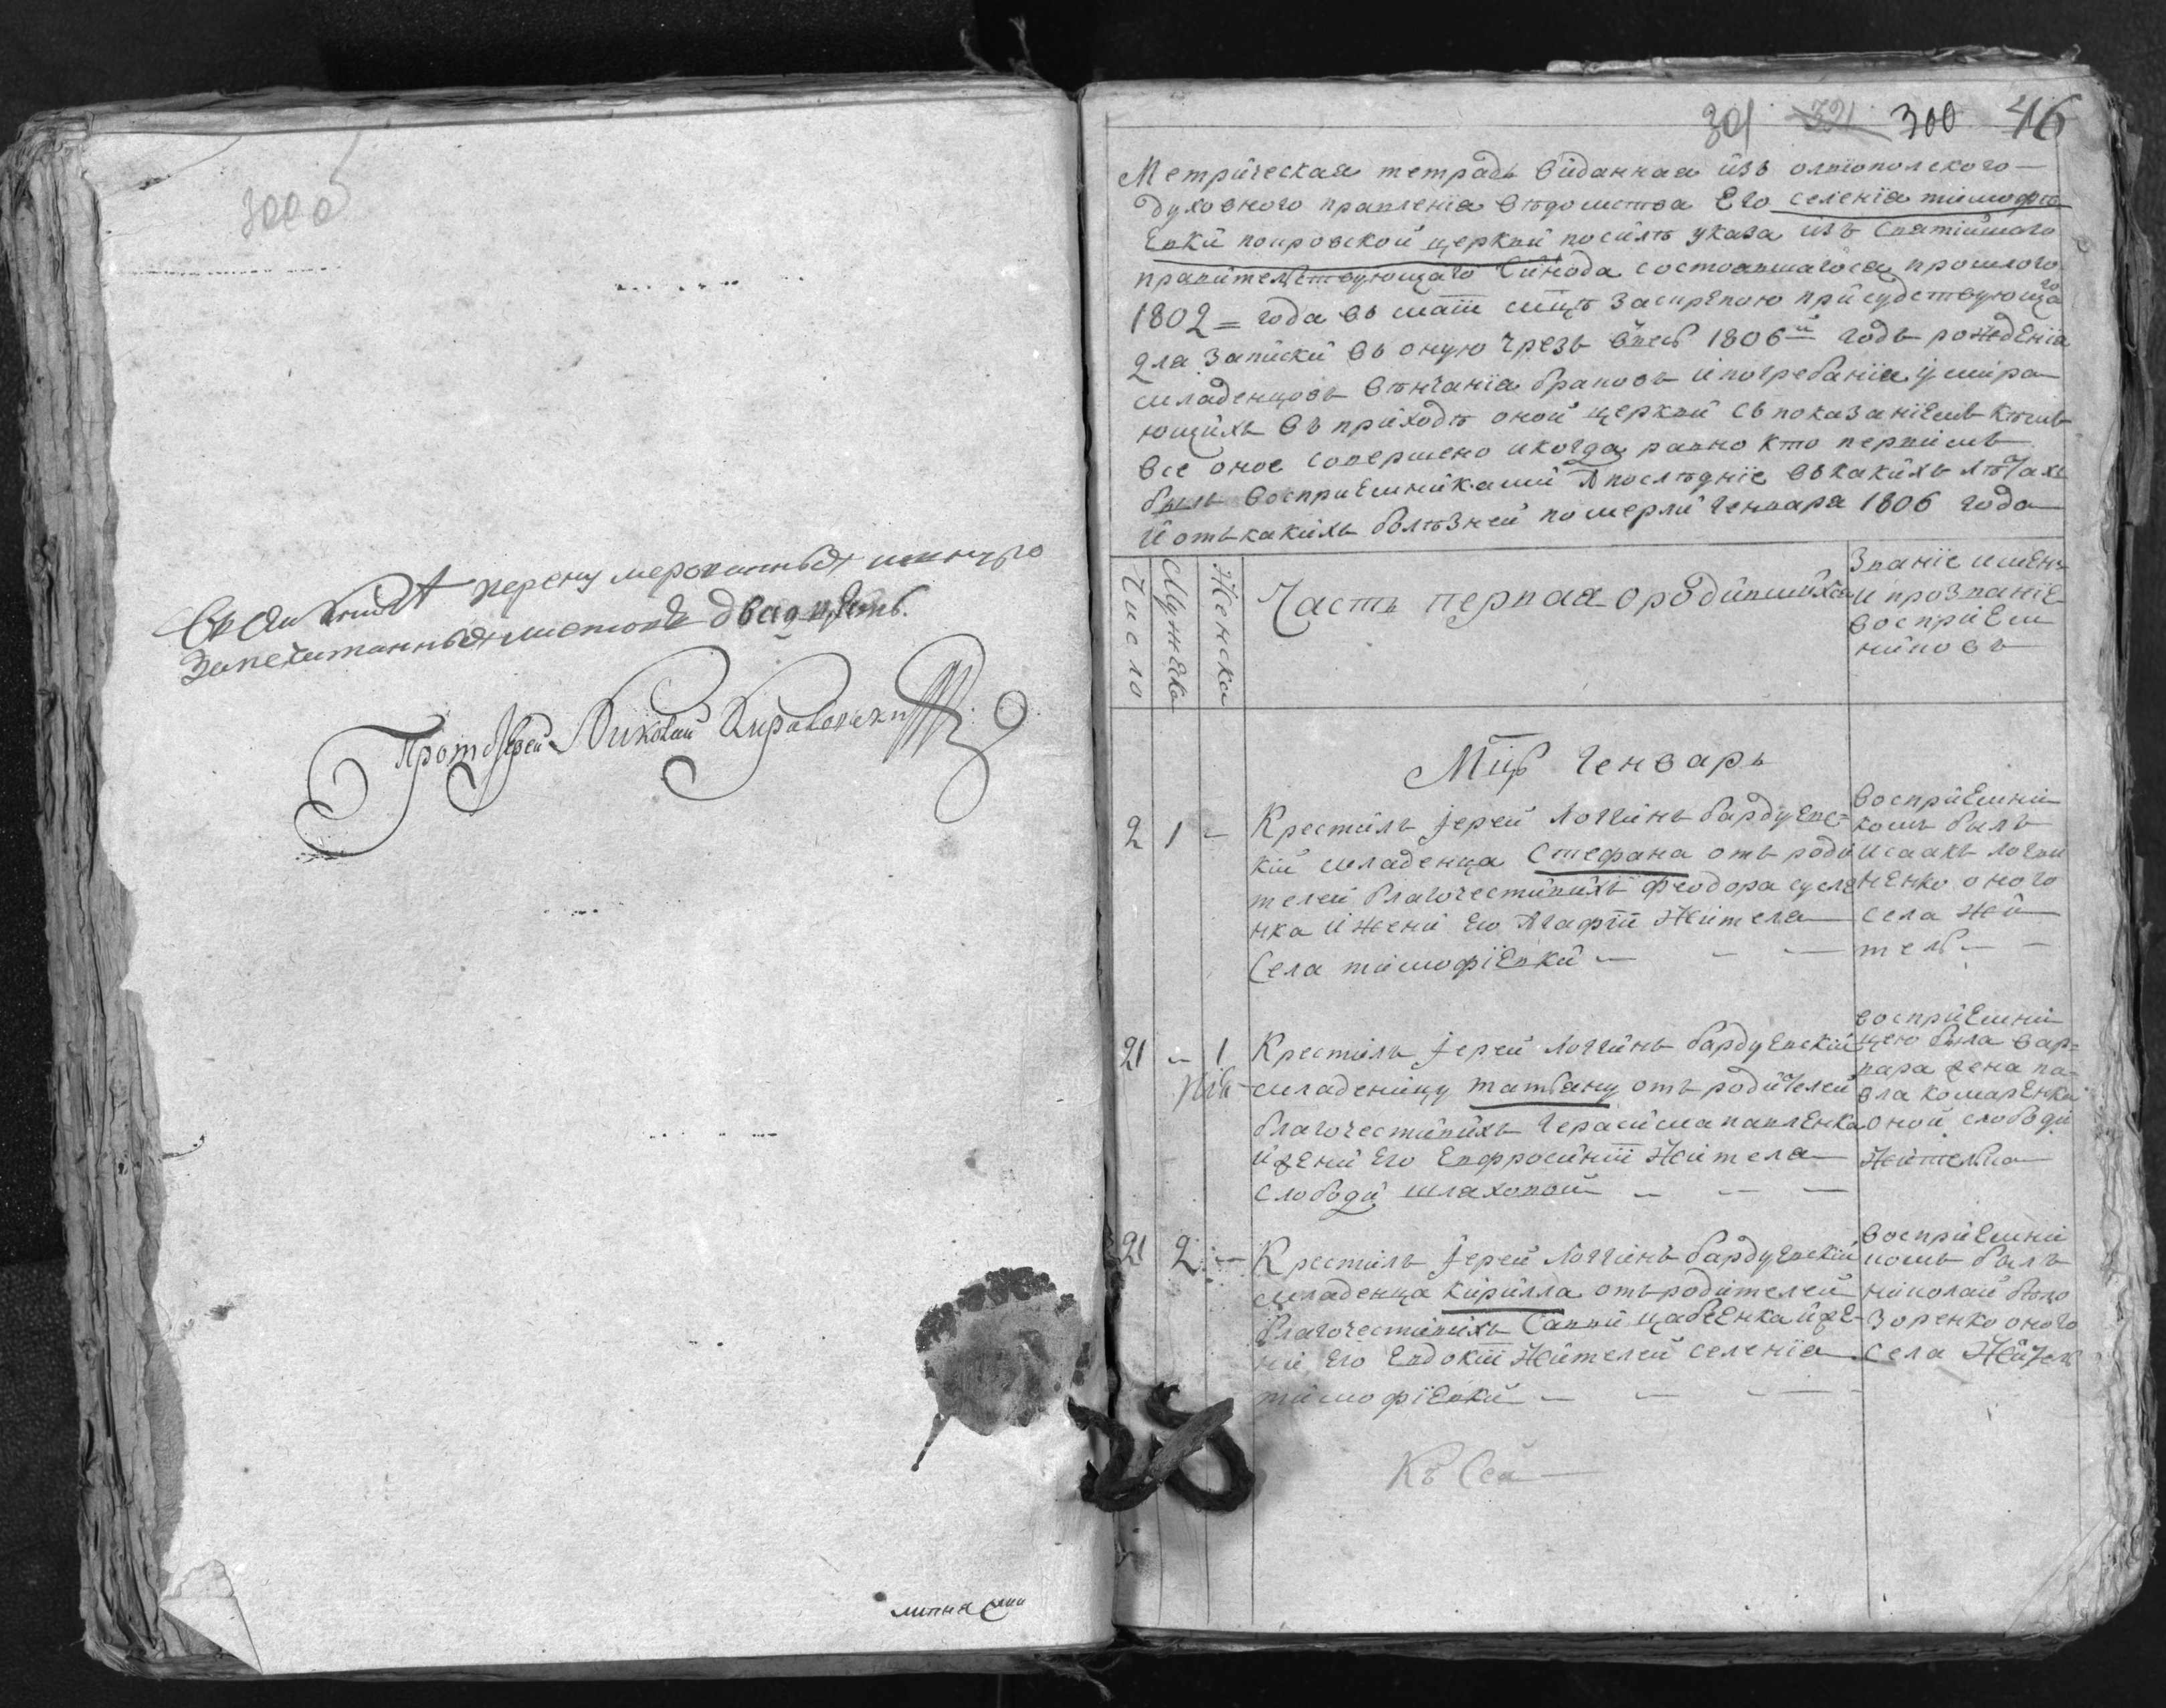 3000
перенумерованныхъ
запечатанныхъ листовъ двадцять.
Протоіерей Николай
301 321 300 46
Метрическая тетрадь виданная изъ олвіополского
духовного правленія вѣдомства Его селенія тимофіѣ
Евки покровской церкви по силѣ указа изъ Святійшаго
правителствующаго Синода состоявшагося прошлого
1802 = года въ маіи мцѣ за скрепою присудствующаго
для записки въ оную чрезъ весь 1806й годъ рожденія
младенцовъ вѣнчанія браковъ и погребанія умира
ющихъ въ приходѣ оной церкви съ показаніемъ кѣмъ
все оное совершено и когда равно кто первимъ
былъ восприемниками А послѣдніе въ какихъ лѣтахъ
и отъ какихъ болѣзней померли Генваря 1806 года
Число
Мужеска
Женска
Часть первая о родившихся
Званіе имень
и прозваніе
восприем
никовъ
Мцъ Генварь
2 1 - Крестилъ іерей Логгинъ бардуевс=
кій младенца Стефана отъ роди
телей благочестивихъ Феодора суслѣ
нка и жени Его Агафіи жителя
Села тимофіевки
восприемни
комъ былъ
Исаакъ логви
ненко оного
села жи
тель
21 - 1 Крестилъ іерей Логгинъ бардуевскій
младеницу татьану отъ родителей
благочестивихъ Герасима павленка
и жени Его Евфросиніи жителя
слободи шляховой
восприемни
цею была вар=
вара жена па=
вла комаренка
оной слободи
жителька
21 2 - Крестилъ іерей Логгинъ бардуевскій
младенца Кирилла отъ родителей
благочестивихъ Савви цабеенка и же
ни Его Евдокіи жителей селенія
тимофіевки
восприемни
комъ былъ
николай бѣло
зоренко оного
села житель
Къ Сей